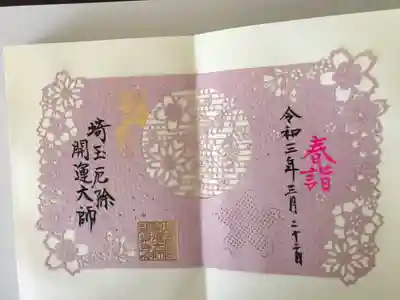 春詣
令和三年三月二十六日
埼玉厄除
開運大師